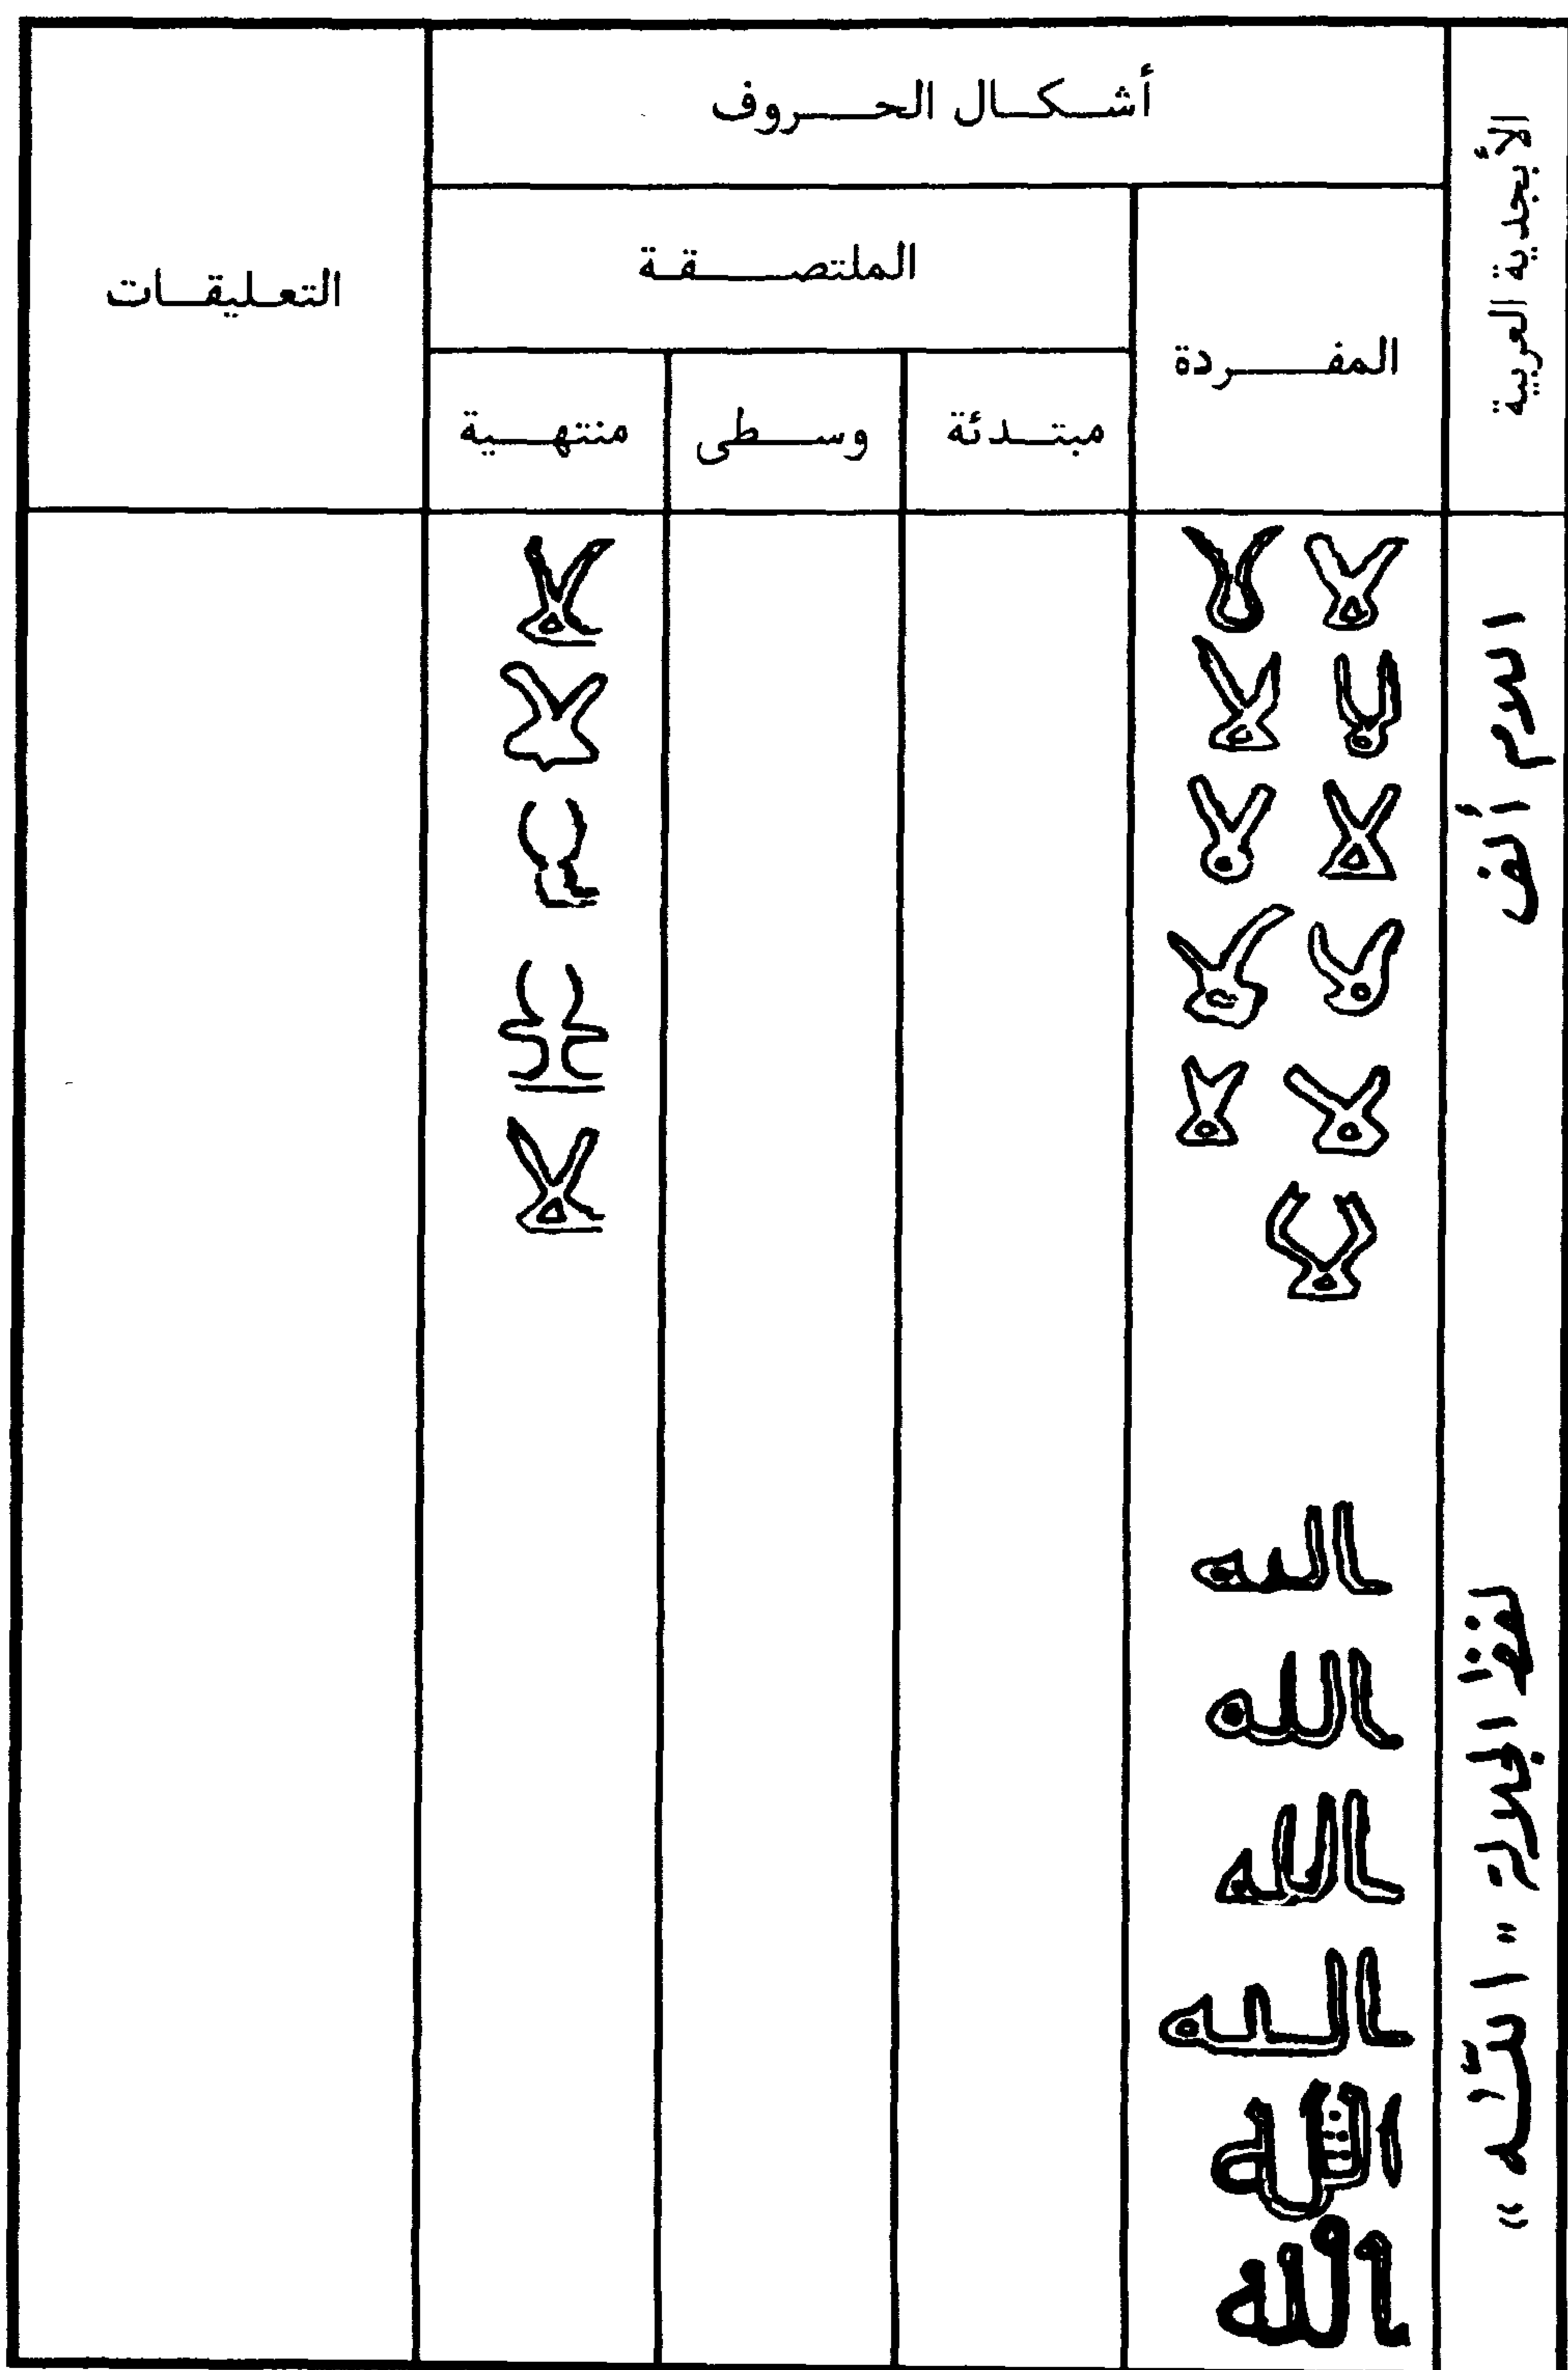 الأبجدية العربية
أشكال الحروف
المفردة
الملتصقة
مبتدئة
وسطى
منتهية
التعليقات
اللام ألف
لا لا
لا لا
لا لا
لا لا
لا لا
لا
لا
لا
لا
لا
لا
لفظ الجلالة " اللّه "
الله
الله
الله
الله
الله
الله